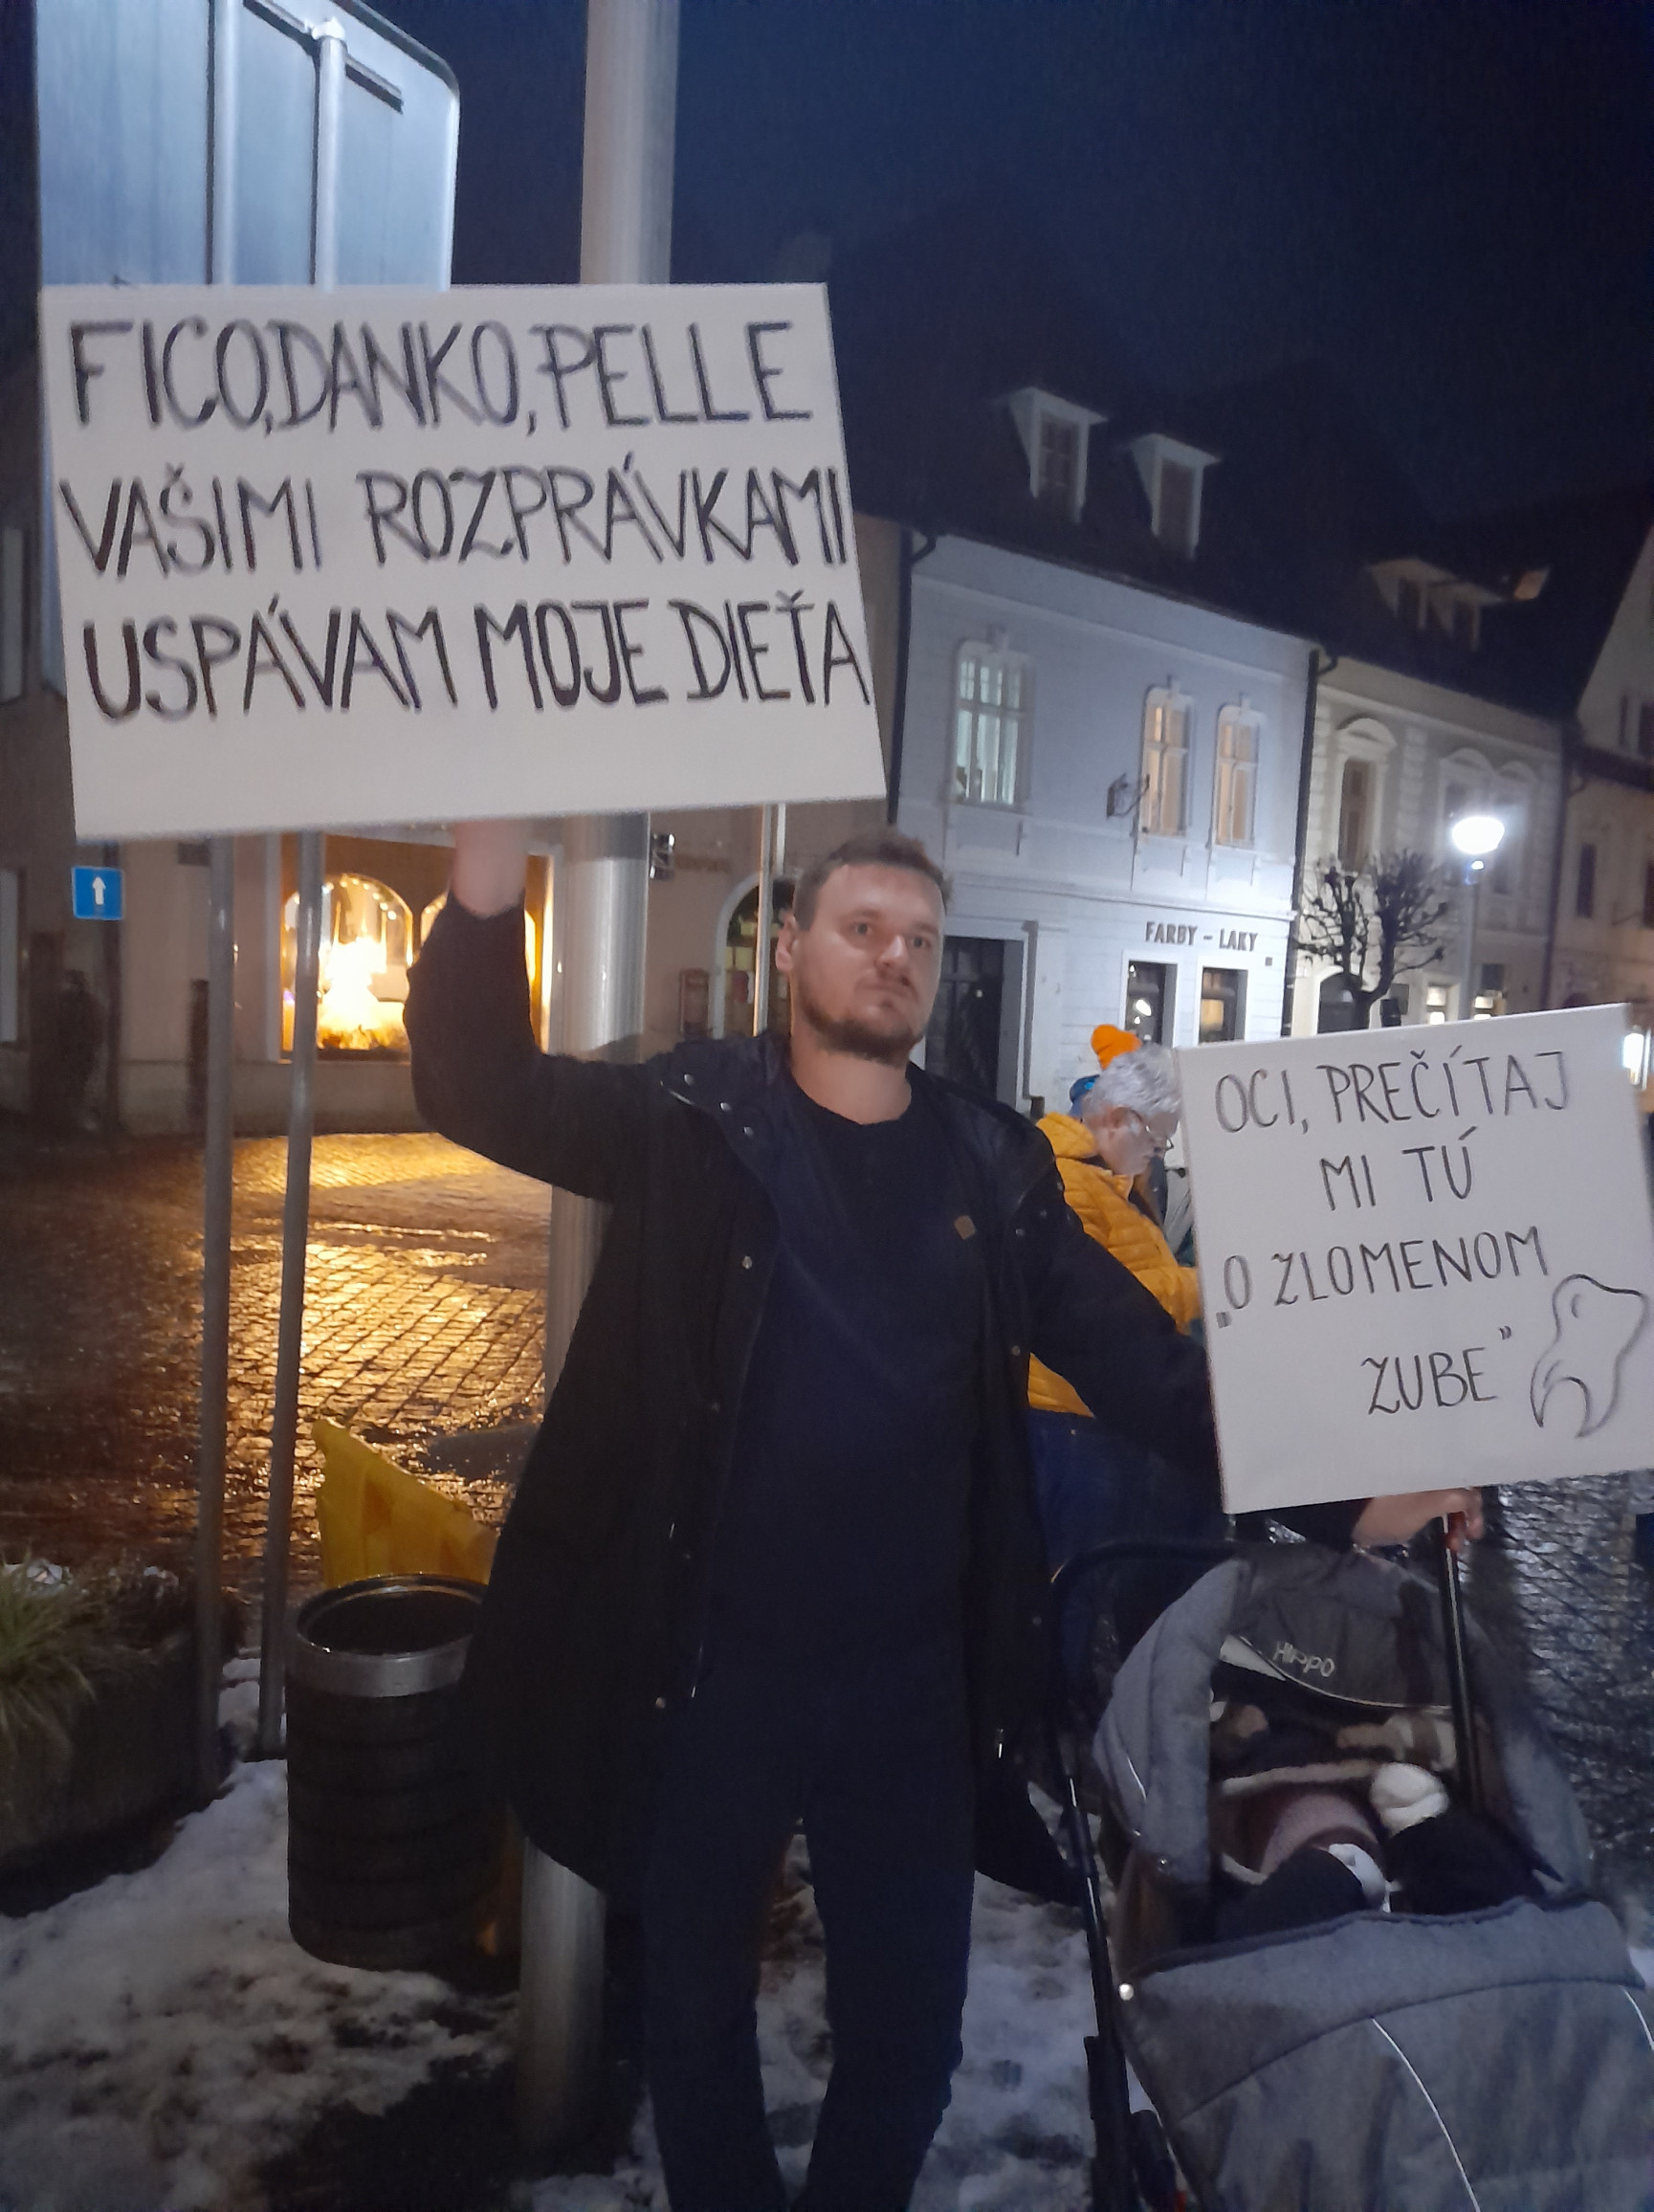 FICO,DANKO,PELLE
VAŠIMI ROZPRÁVKAMI
USPÁVAM MOJE DIEŤA
FARBY - LAKY
OCI, PREČÍTAJ
MI TÚ
„O ZLOMENOM
ZUBE"
HIPPO